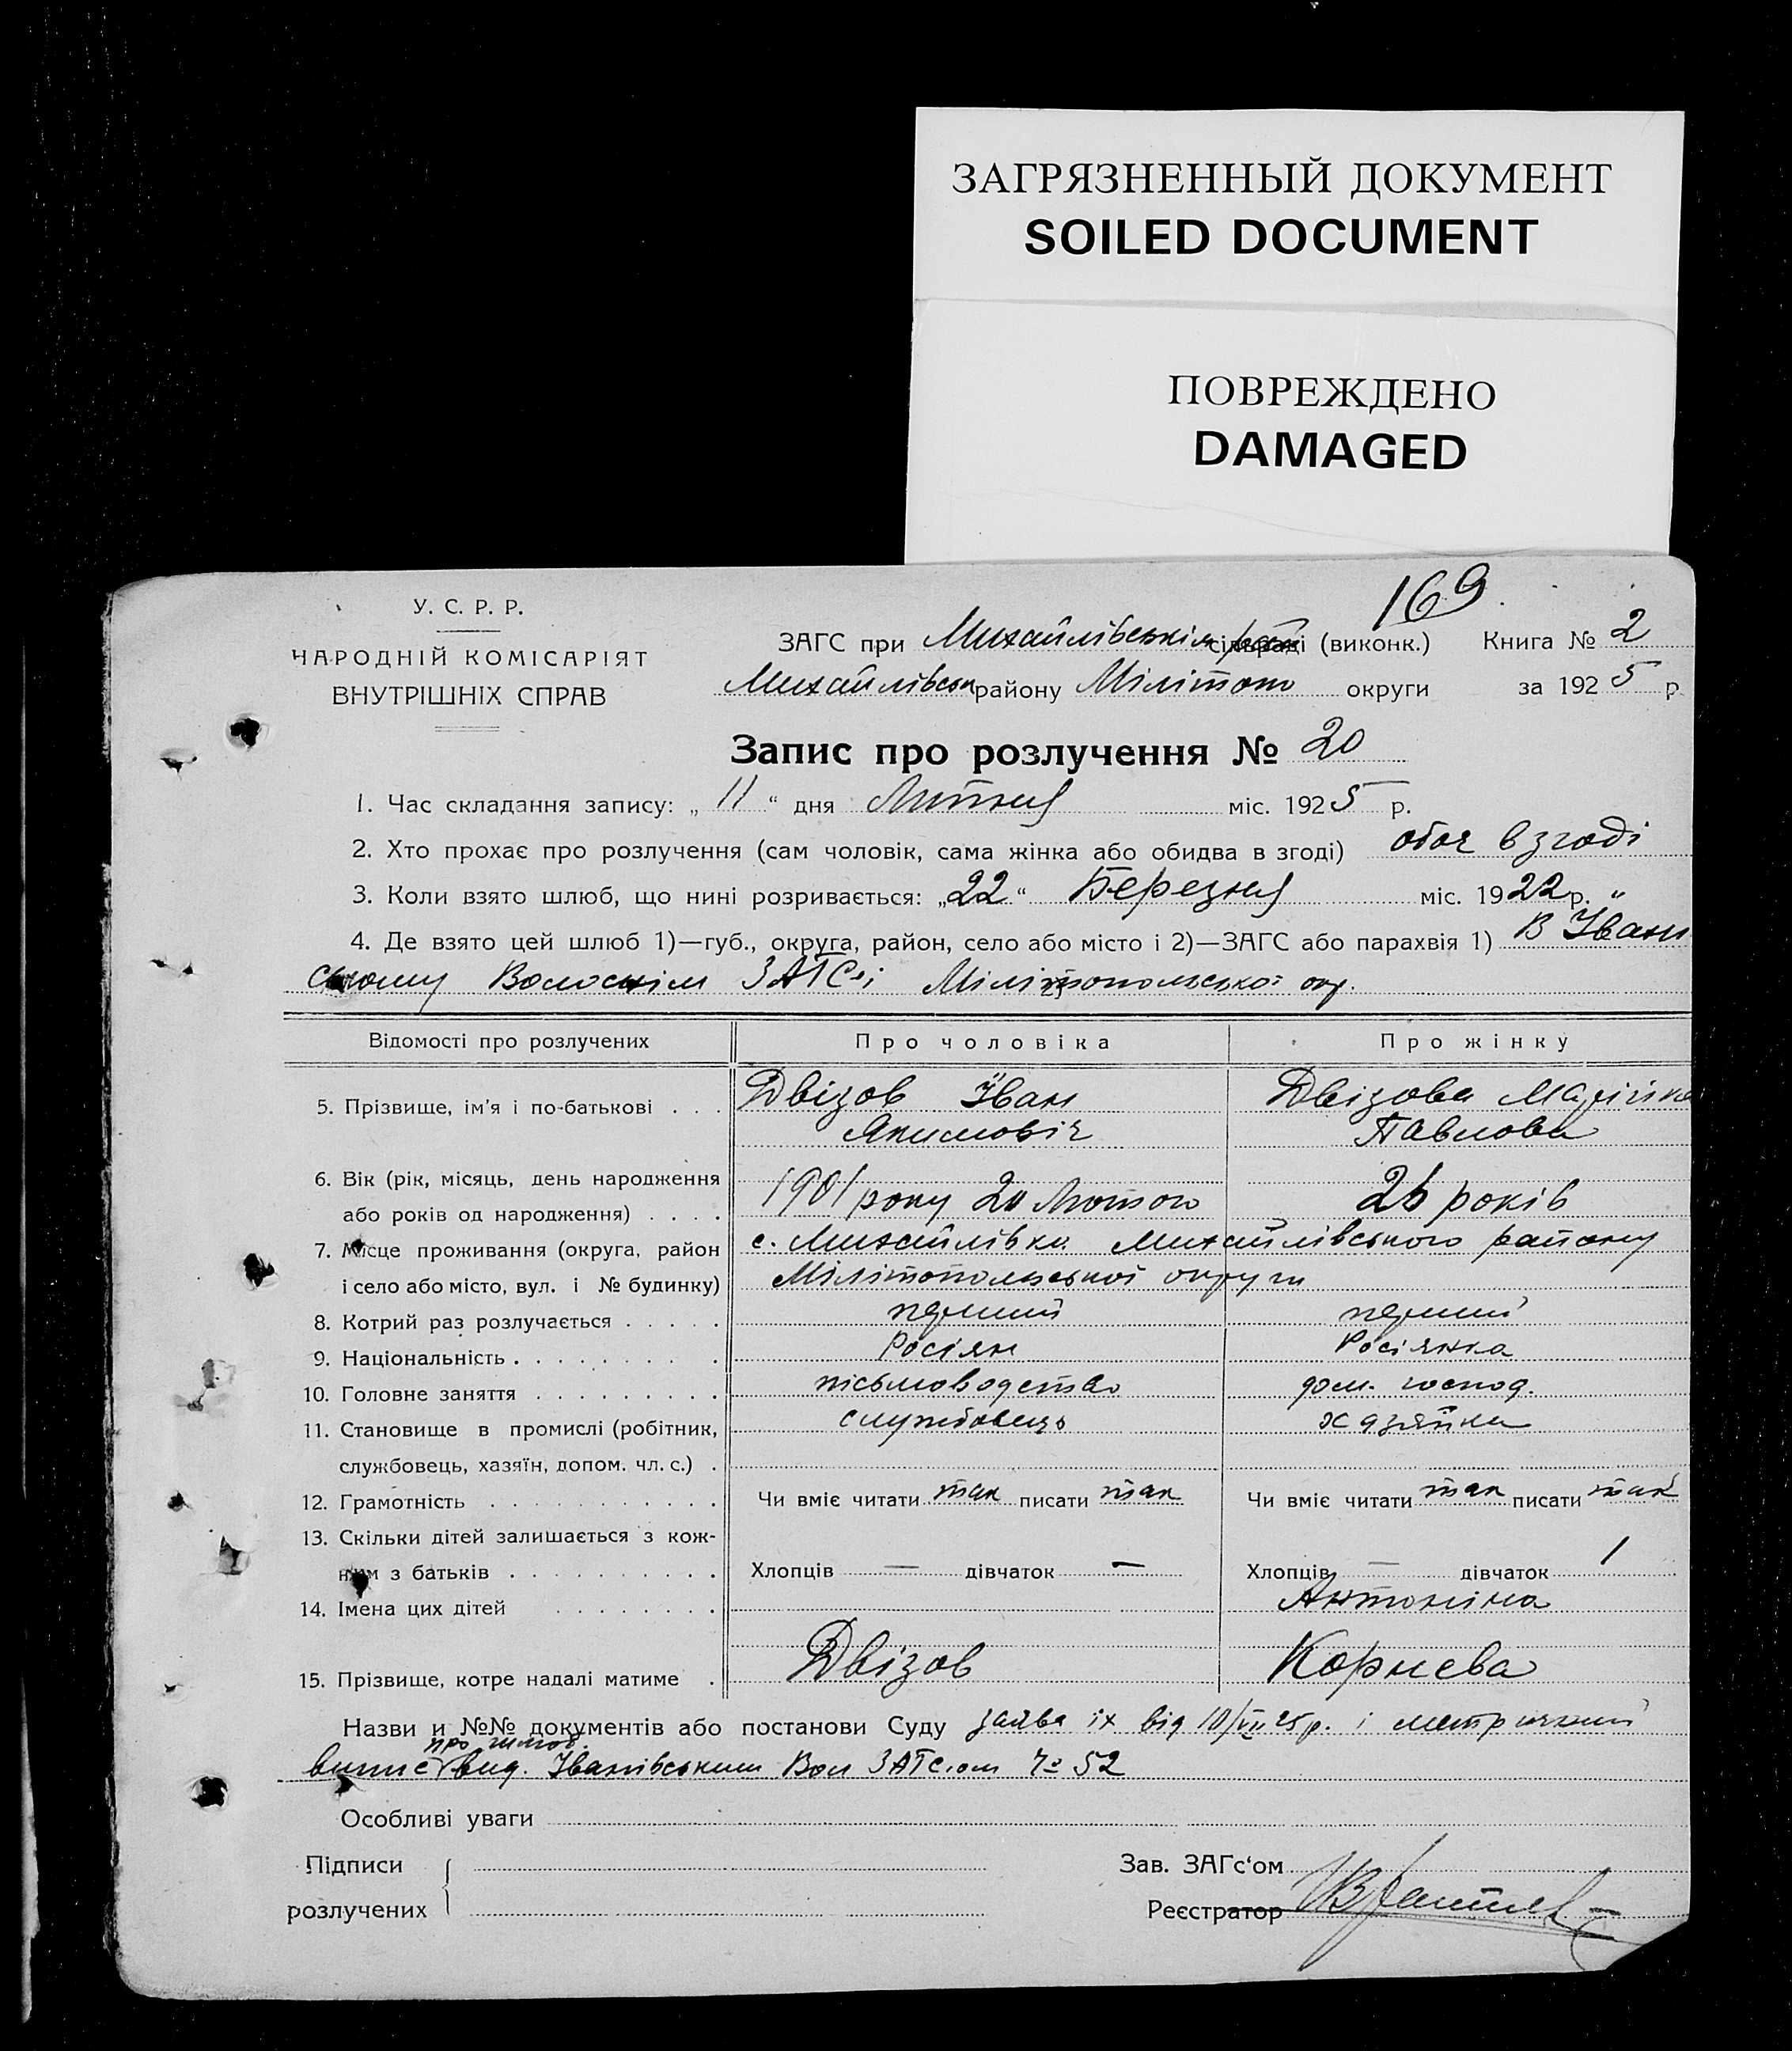 ЗАГРЯЗНЕННЫЙ ДОКУМЕНТ
SOILED DOCUMENT
ПОВРЕЖДЕНО
DAMAGED
169
У. С. Р. Р.
НАРОДНІЙ КОМІСАРІЯТ
ВНУТРІШНІХ СПРАВ
ЗАГС при Михайлівськім сільраді (виконк.) Книга № 2
Михайлівськ району Мілітопо округи за 1925 р
Запис про розлучення № 20
1. Час складання запису: „ 11 “ дня Липня міс. 1925 р.
2. Хто прохає про розлучення (сам чоловік, сама жінка або обидва в згоді) обоє в згоді
3. Коли взято шлюб, що нині розривається: „22“ Березня міс. 1922 р.
4. Де взято цей шлюб 1)—губ., округа, район, село або місто і 2)—ЗАГС або парахвія 1) В Івани
ському Волоскім ЗАГС'і Мілітопольської окр.
Відомості про розлучених Про чоловіка Про жінку
5. Прізвище, ім'я і по-батькові . . . Двізов Іван Двізова
Якимовіч Павлова
6. Вік (рік, місяць, день народження
або років од народження) . . . . 1901 року 20 Лютого 26 років
7. Місце проживання (округа, район с. Михайлівка Михайлівського району
і село або місто, вул. і № будинку) Мілітопольської округи
8. Котрий раз розлучається . . . . перший перший
9. Національність . . . . . . . . . Росіян Росіянка
10. Головне заняття . . . . . . . . . пісьмоводство дом. господ.
11. Становище в промислі (робітник, службовець хазяйка
службовець, хазяїн, допом. чл. с.) .
12. Грамотність . . . . . . . . . . . Чи вміє читати так писати так Чи вміє читати так писати так
13. Скільки дітей залишається з кож-
ним з батьків . . . . . . . . . . Хлопців — дівчаток — Хлопців — дівчаток 1
14. Імена цих дітей . . . . . . . . Антоніна
15. Прізвище, котре надалі матиме . Двізов Корнєва
Назви и №№ документів або постанови Суду заява їх від 10/VII 25 р. і метричний
про шлюб.
випис вид. Іванівським Вол ЗАГС'ом № 52
Особливі уваги
Підписи
розлучених
Зав. ЗАГс‘ом
Реєстратор